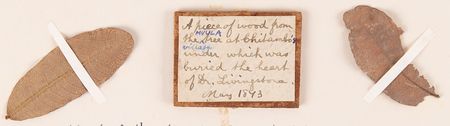 A piece of wood from
MVULA
the tree at Chitambo's
village
under which was
buried the heart
of Dr. Livingstone
May 1873